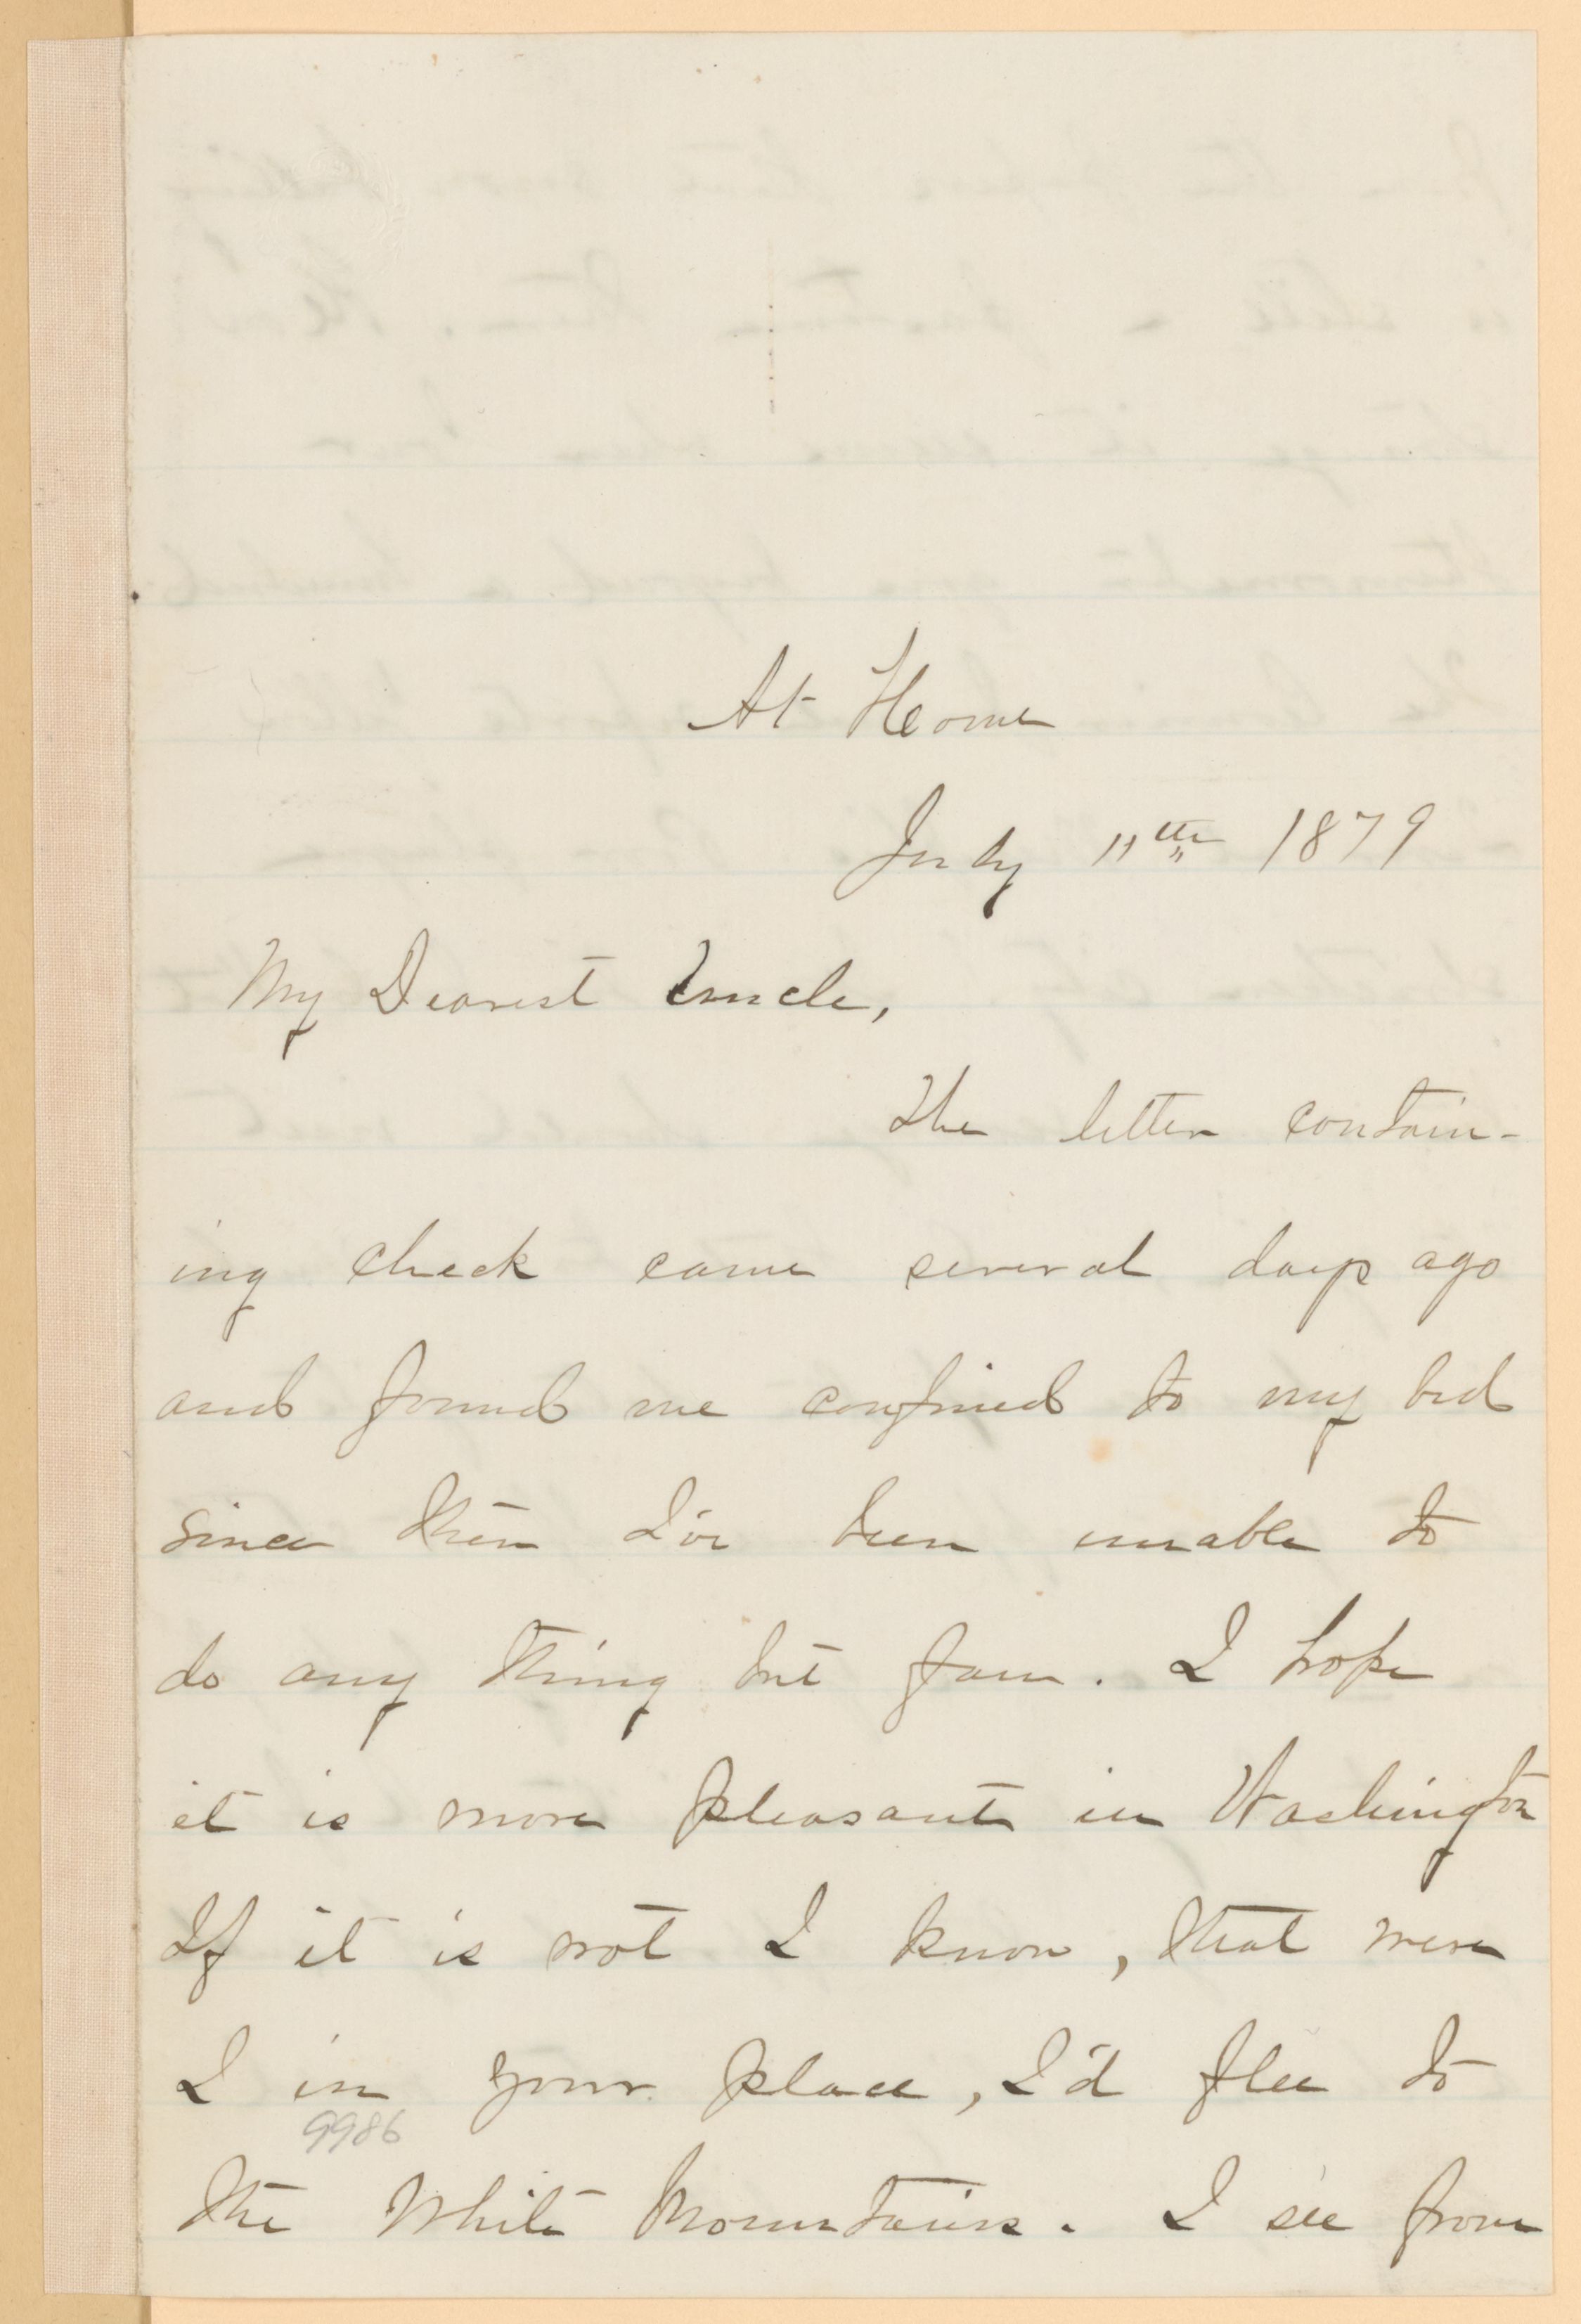 At Home
July 11th 1879
My Dearest Uncle,
The letter contain-
ing check came several days ago
and found me confined to my bed
since then I've been unable to
do any thing but fan. I hope
it is more pleasant in Washington
If it is not I know, that were
I in your place, I'd flee to
9986
the White Mountains. I see from